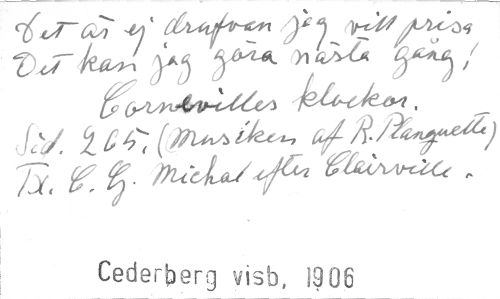 Det är ej drufvan jag vill prisa
Det kan jag göra nästa gång!
Cornevilles klockor.
Sid. 265. (Musiken af R. Planquette)
Tx. C. G. Michal efter Clairville.
Cederberg visb, 1906